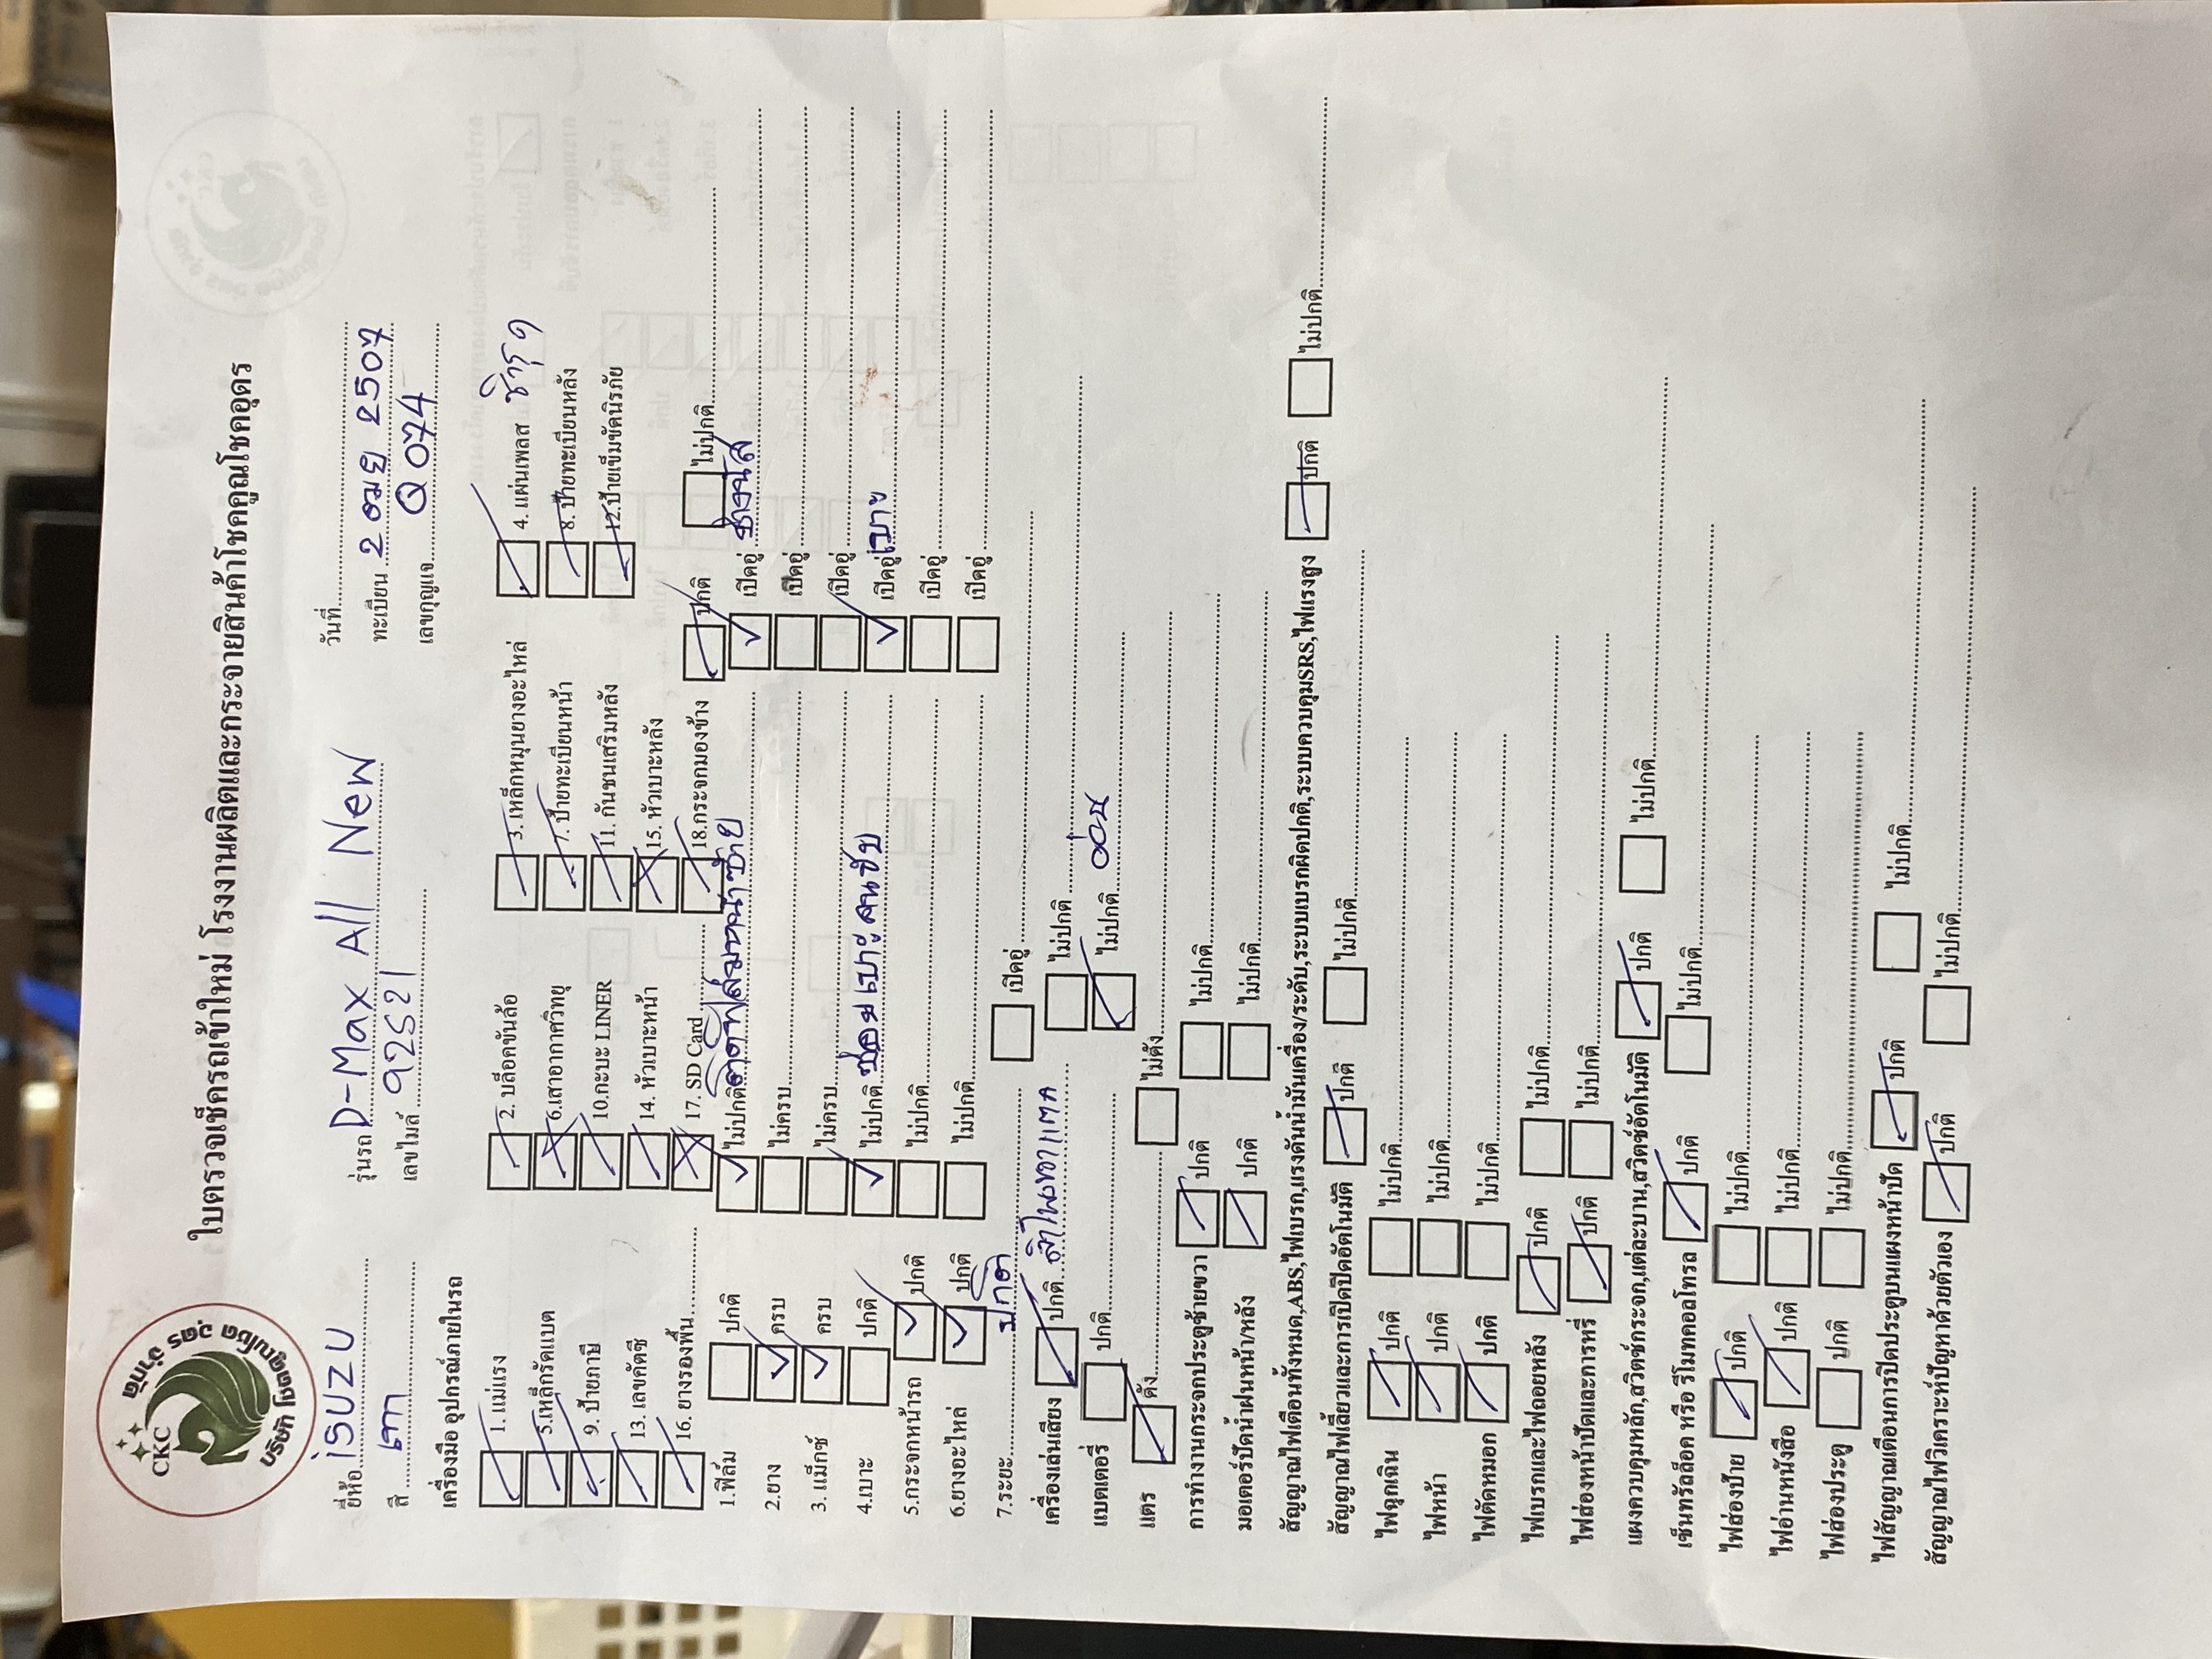 บริษัท โชคคูณโชค อุดร จำกัด
CKC
ใบตรวจเช็ครถเข้าใหม่ โรงงานผลิตและกระจายสินค้าโชคคูณโชคอุดร
ยี่ห้อ iSUZU รุ่นรถ D-Max All New วันที่
สี เทา เลขไมล์ 92521 ทะเบียน 2 ฒย 2507
เลขกุญแจ Q 074
เครื่องมือ อุปกรณ์ภายในรถ
1. แม่แรง 2. บล็อคขันล้อ 3. เหล็กหมุนยางอะไหล่ 4. แผ่นเพลส ชำรุด
5.เหล็กรัดแบต 6.เสาอากาศวิทยุ 7. ป้ายทะเบียนหน้า 8. ป้ายทะเบียนหลัง
9. ป้ายภาษี 10.กะบะ LINER 11. กันชนเสริมหลัง 12.ป้ายเข็มขัดนิรภัย
13. เลขคัตซี 14. หัวเบาะหน้า 15. หัวเบาะหลัง
16. ยางรองพื้น 17. SD Card 18.กระจกมองข้าง ปกติ ไม่ปกติ
1.ฟิล์ม ปกติ ไม่ปกติ เปิดอยู่
2.ยาง ครบ ไม่ครบ เปิดอยู่
3. แม็กซ์ ครบ ไม่ครบ เปิดอยู่
4.เบาะ ปกติ ไม่ปกติ ซ่อมเบาะคนขับ เปิดอยู่ เบาะ
5.กระจกหน้ารถ ปกติ ไม่ปกติ เปิดอยู่
6.ยางอะไหล่ ปกติ ไม่ปกติ เปิดอยู่
7.ระยะ ปกติ เปิดอยู่
เครื่องเล่นเสียง ปกติ ลำโพงเบาแตก ไม่ปกติ
แบตเตอรี่ ปกติ ไม่ปกติ อ่อน
แตร ดัง ไม่ดัง
การทำงานกระจกประตูซ้ายขวา ปกติ ไม่ปกติ
มอเตอร์ปัดน้ำฝนหน้า/หลัง ปกติ ไม่ปกติ
สัญญาณไฟเตือนทั้งหมด,ABS,ไฟเบรก,แรงดันน้ำมันเครื่อง/ระดับ,ระบบเบรกผิดปกติ,ระบบควบคุมSRS,ไฟแรงสูง ปกติ ไม่ปกติ
สัญญาณไฟเลี้ยวและการเปิดปิดอัตโนมัติ ปกติ ไม่ปกติ
ไฟฉุกเฉิน ปกติ ไม่ปกติ
ไฟหน้า ปกติ ไม่ปกติ
ไฟตัดหมอก ปกติ ไม่ปกติ
ไฟเบรกและไฟถอยหลัง ปกติ ไม่ปกติ
ไฟส่องหน้าปัดและการหรี่ ปกติ ไม่ปกติ
แผงควบคุมหลัก,สวิตช์กระจก,แต่ละบาน,สวิตช์อัตโนมัติ ปกติ ไม่ปกติ
เซ็นทรัลล็อค หรือ รีโมทคอลโทรล ปกติ ไม่ปกติ
ไฟส่องป้าย ปกติ ไม่ปกติ
ไฟอ่านหนังสือ ปกติ ไม่ปกติ
ไฟส่องประตู ปกติ ไม่ปกติ
ไฟสัญญาณเตือนการปิดประตูบนแผงหน้าปัด ปกติ ไม่ปกติ
สัญญาณไฟวิเคราะห์ปัญหาด้วยตัวเอง ปกติ ไม่ปกติ